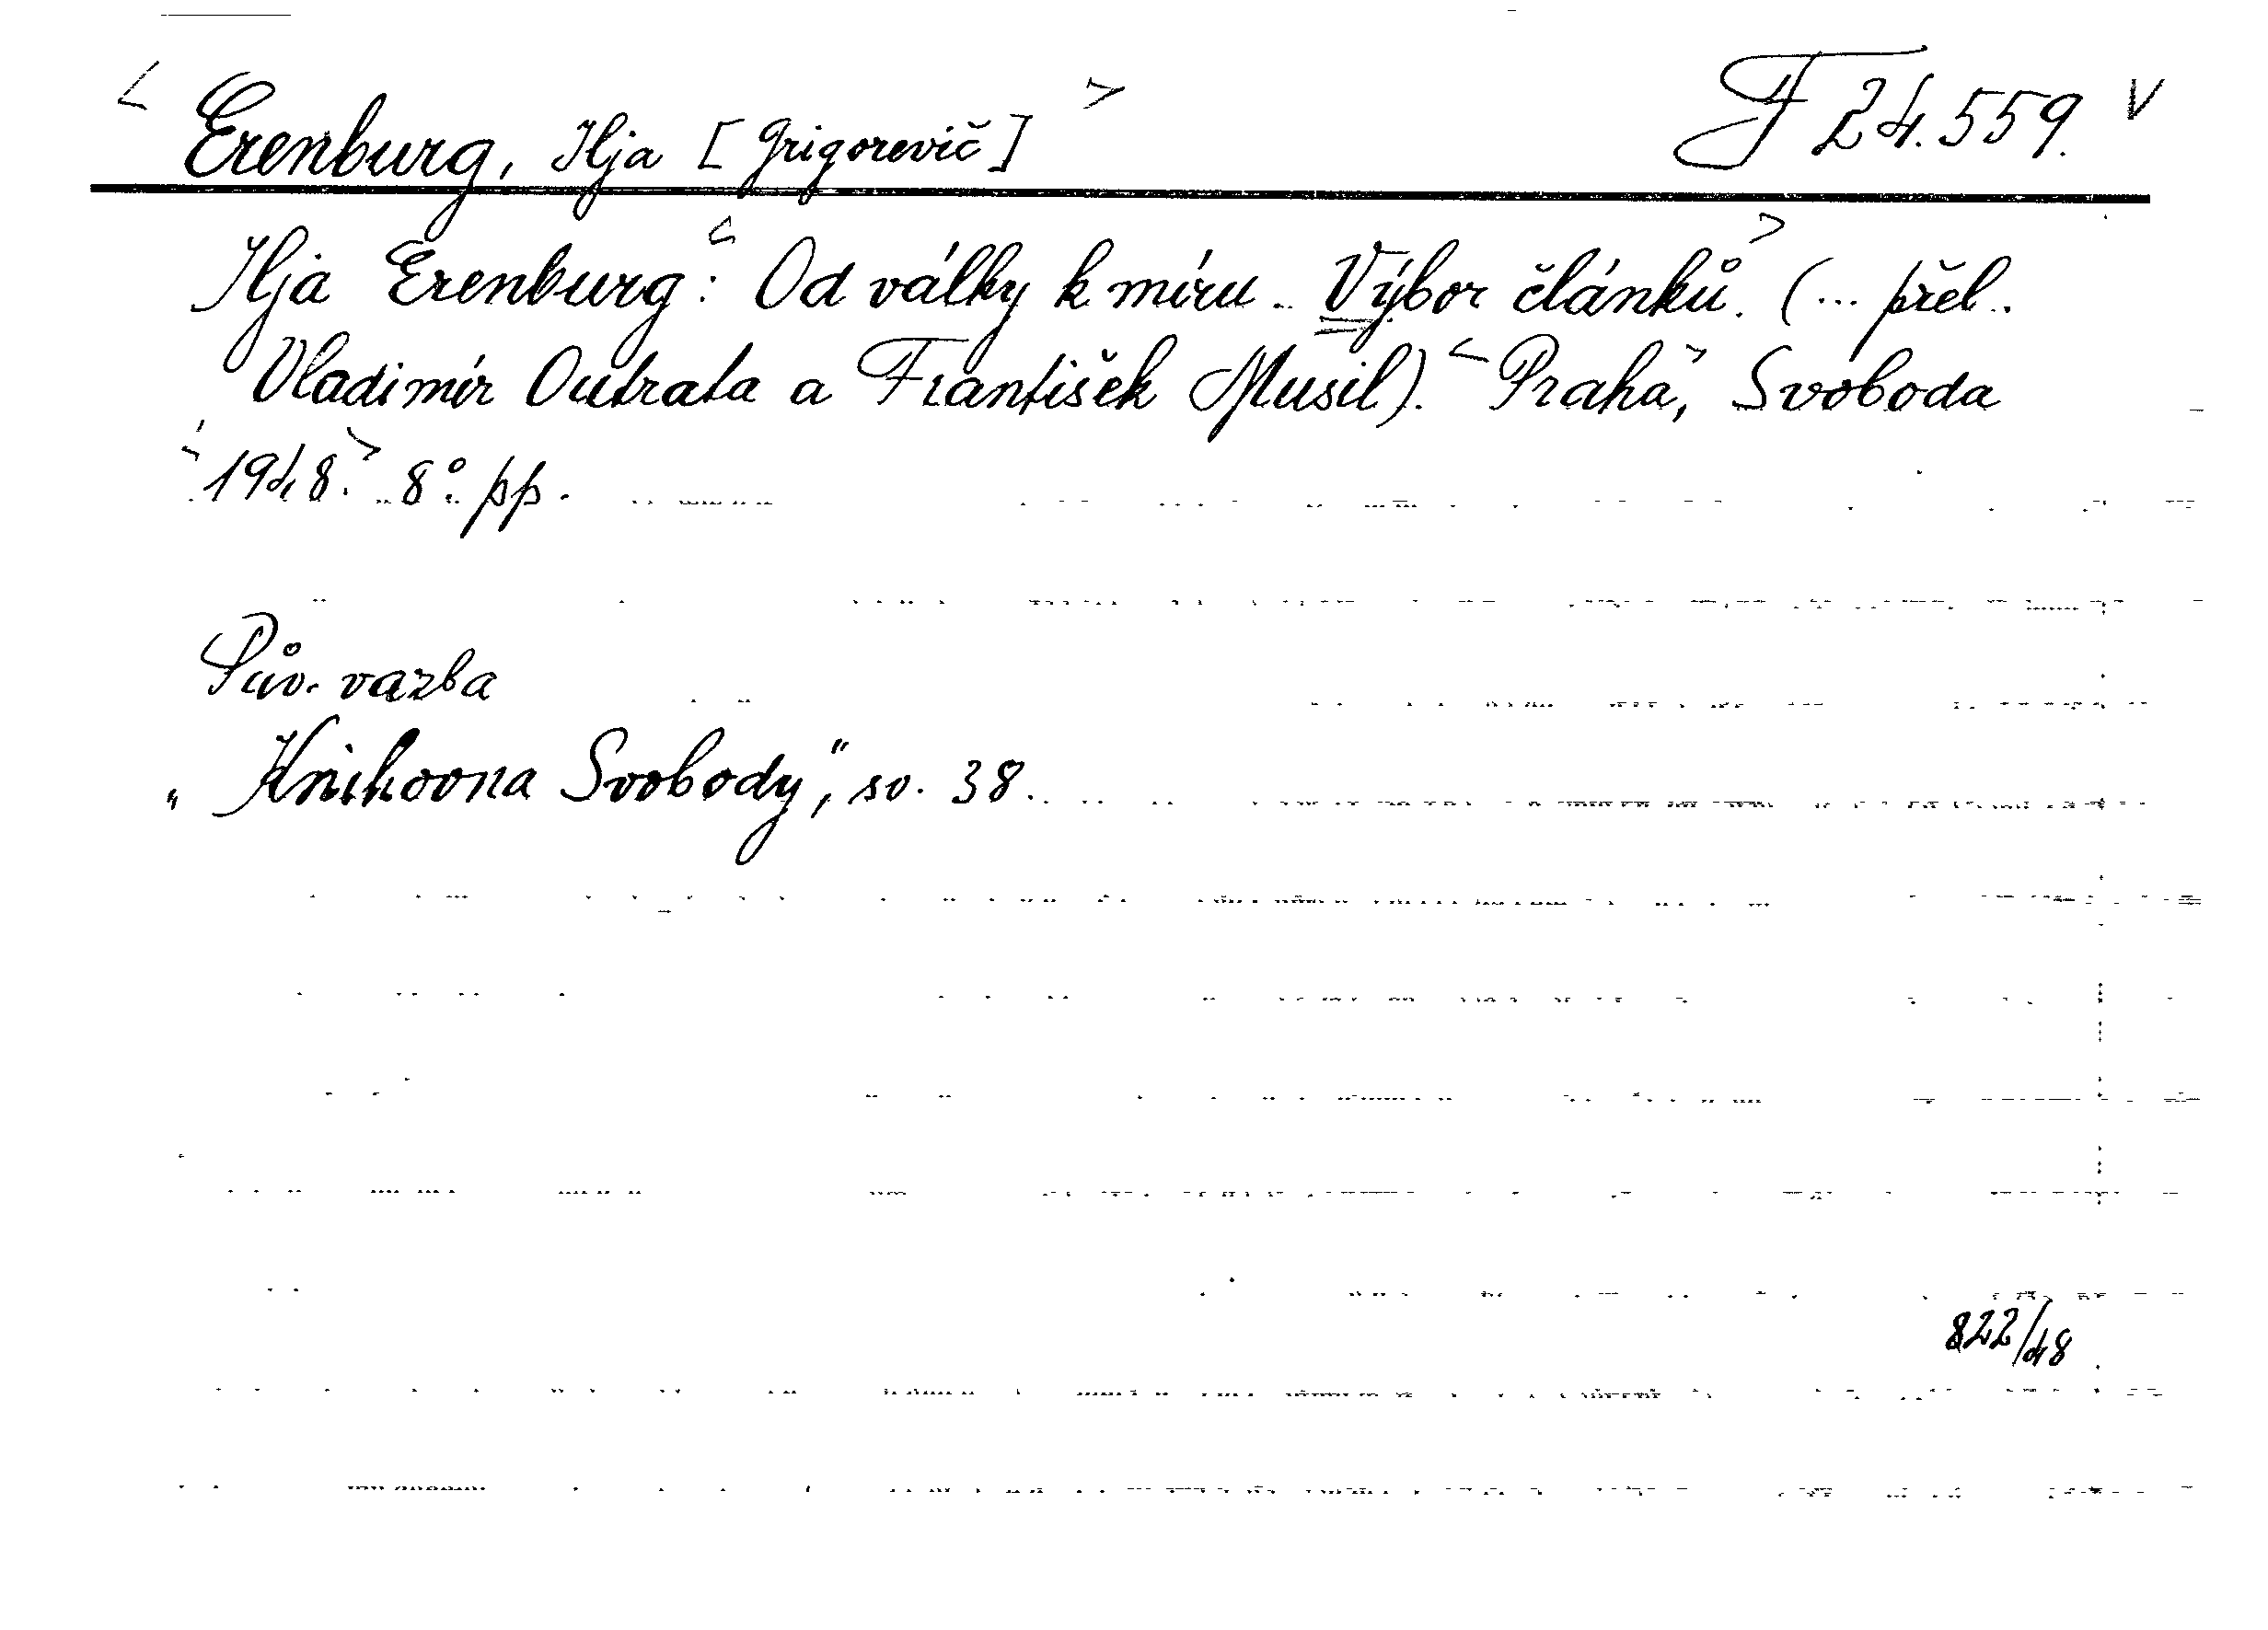 < Erenburg, Ilja [Grigorevič] > F 24.559. V
Ilja Erenburg: < Od války k míru. Výbor článků. > (... přel.
Vladimír Outrata a František Musil). < Praha, > Svoboda
< 1948. > 8°. pp.
Pův. vazba
„Knihovna Svobody", sv. 38.
822/48